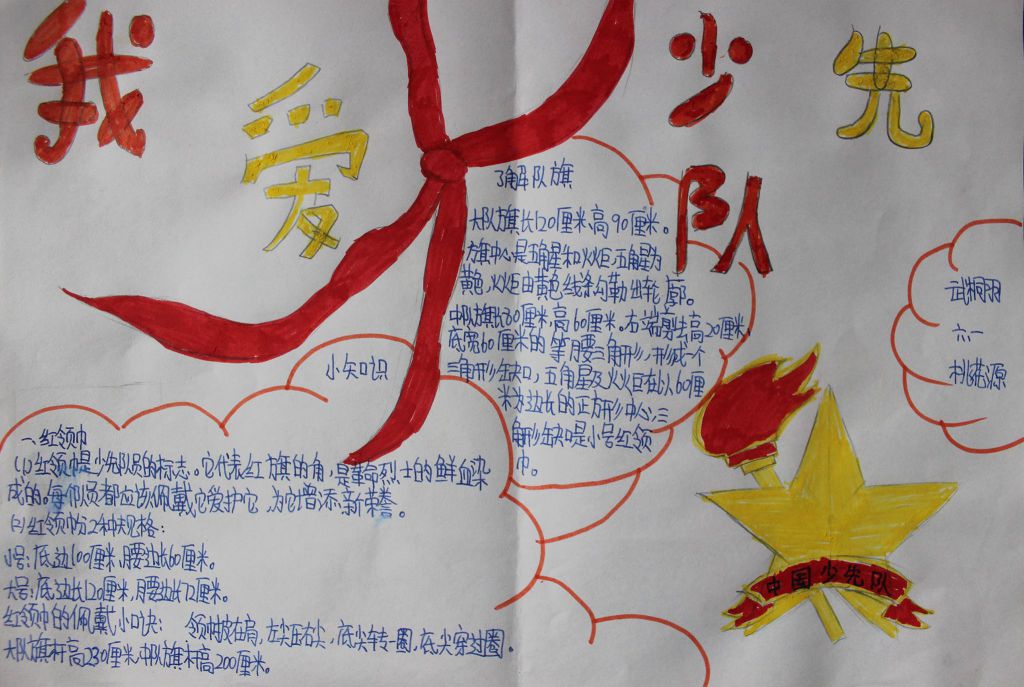 我爱少先队
了解队旗
大队旗长120厘米,高90厘米。
旗中心是五角星和火炬,五角星为
黄色,火炬由黄色线条勾勒出轮廓。
中队旗长80厘米,高60厘米。右端剪去高20厘米,
底宽60厘米的等腰三角形,形成一个
三角形缺口,五角星及火炬在以60厘
米为边长的正方形中心,三
角形缺口是小号红领
巾。
小知识
一、红领巾
(1)红领巾是少先队员的标志。它代表红旗的角,是革命烈士的鲜血染
成的。每个队员都应该佩戴它爱护它,为它增添新荣誉。
(2)红领巾分2种规格:
小号:底边长100厘米,腰边长60厘米。
大号:底边长120厘米,腰边长72厘米。
红领巾的佩戴小口决: 领巾披在肩,左尖压右尖,底尖转一圈,底尖穿过圈。
大队旗杆高230厘米,中队旗杆高200厘米。
六一
桃花源
中国少先队